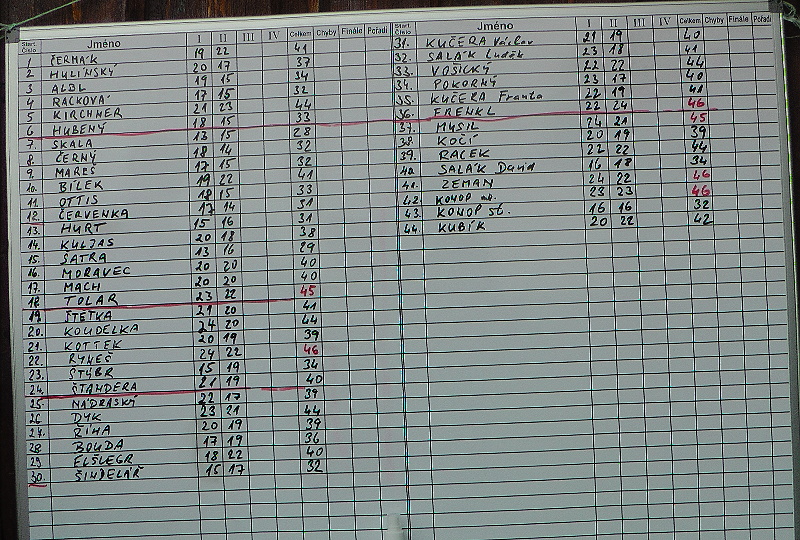 Start. Číslo Jméno I II III IV Celkem Chyby Finále Pořadí
1 ČERMÁK 19 22 41
2 HULÍNSKÝ 20 17 37
3 ALBL 19 15 34
4 RACKOVÁ 17 15 32
5 KIRCHNER 21 23 44
6 HUBENÝ 18 15 33
7. SKÁLA 13 15 28
8. ČERNÝ 18 14 32
9. MAREŠ 17 15 32
10. BÍLEK 19 22 41
11 OTTIS 18 15 33
12. ČERVENKA 17 14 31
13. HURT 15 16 31
14. KULJAS 20 18 38
15. ŠATRA 13 16 29
16. MORAVEC 20 20 40
17. MACH 20 20 40
18 TOLAR 23 22 45
19 ŠTĚTKA 21 20 41
20. KOUDELKA 24 20 44
21. KOTTEK 20 19 39
22. RYNEŠ 24 22 46
23. ŠTÝBR 15 19 34
24. ŠTANDERA 21 19 40
25. NÁDRASKÝ 22 17 39
26 DYK 23 21 44
27. ŘÍHA 20 19 39
28 BOUDA 17 19 36
29 ELŠLEGR 18 22 40
30. ŠINDELÁŘ 15 17 32
Start. Číslo Jméno I II III IV Celkem Chyby Finále Pořadí
31. KUČERA Václav 21 19 40
32. SALÁK Luděk 23 18 41
33. VOŠICKÝ 22 22 44
34. POKORNÝ 23 17 40
35. KUČERA Franta 22 19 41
36. FRENKL 22 24 46
37. MUSIL 24 21 45
38. KOČÍ 20 19 39
39. RACEK 22 22 44
40. SALÁK David 16 18 34
41. ZEMAN 24 22 46
42. KONOP ml. 23 23 46
43. KONOP st. 16 16 32
44. KUBÍK 20 22 42